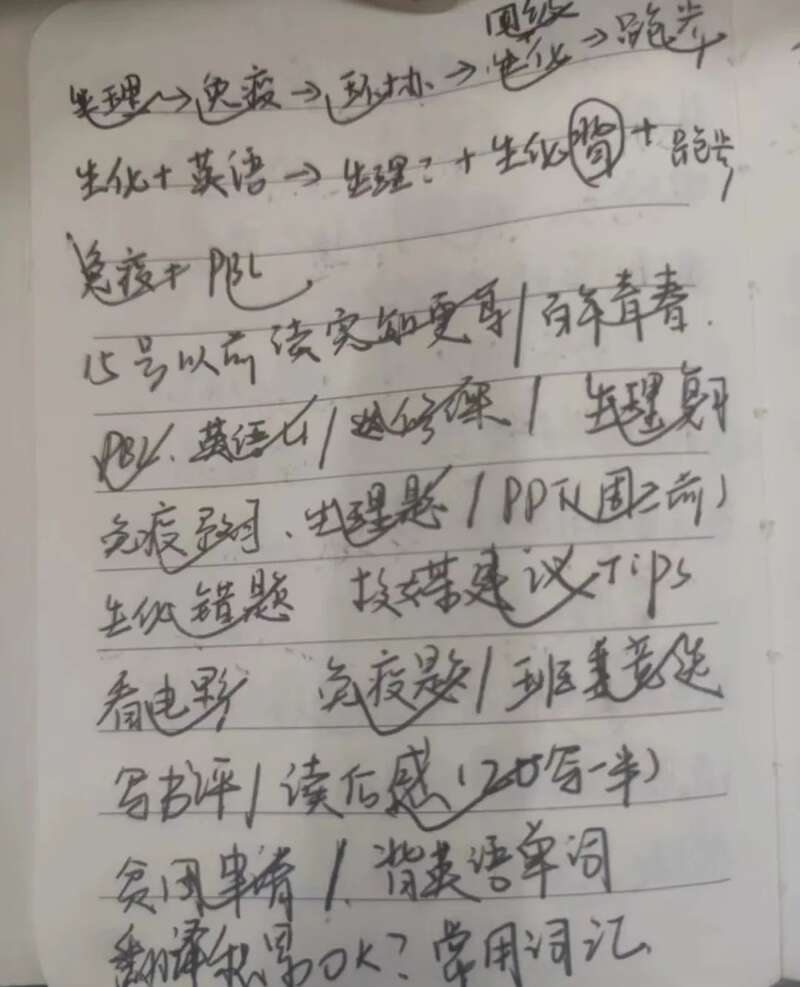 生理→免疫→环协→生化→跑步
生化+英语→生理?+生化背+跑步
免疫+PBL
15号以前读完知更鸟/百年青春.
PBL、英语U/选修课/生理复习
免疫习、生理题/PPT(周二前)
生化错题 投媒建议Tips
看电影 免疫题/班委竞选
写书评/读后感(20写一半)
贫困申请/背英语单词
翻译积累OK?常用词汇